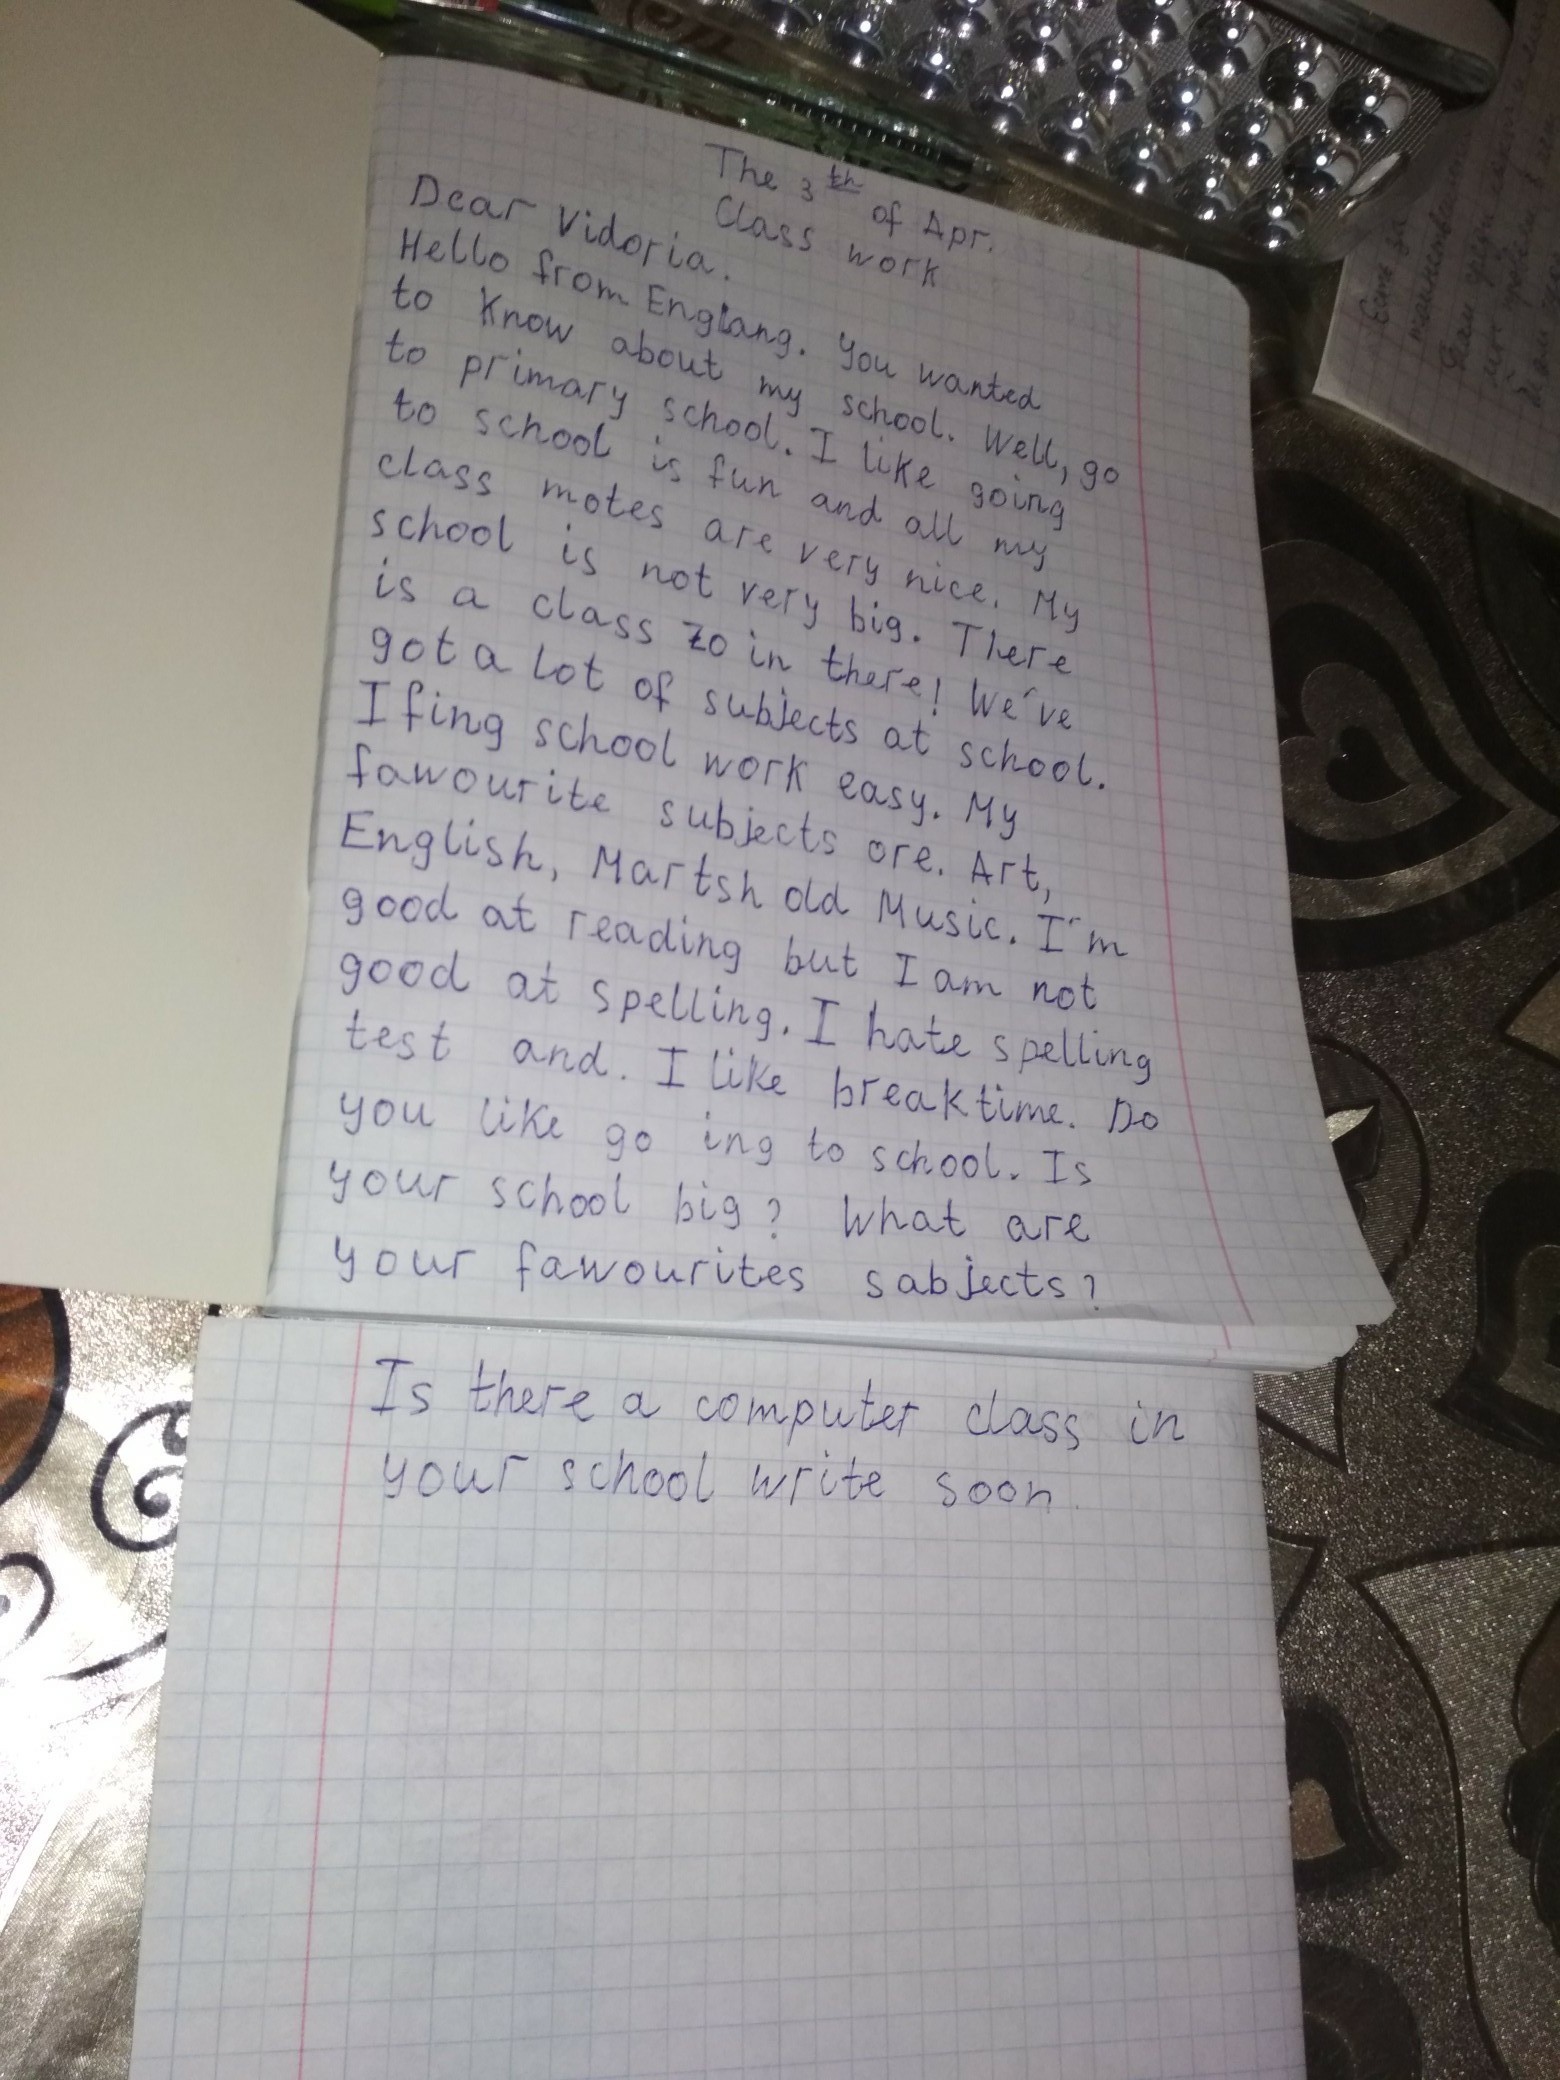 The 3th of Apr.
Class work
Dear Vidoria.
Hello from Englang. You wanted
to know about my school. Well, go
to primary school. I like going
to school is fun and all my
class motes are very nice. My
school is not very big. There
is a class zo in there! We've
got a lot of subjects at school.
I fing school work easy. My
fawourite subjects ore. Art,
English, Martsh old Music. I'm
good at reading but I am not
good at spelling. I hate spelling
test and. I like breaktime. Do
you like go ing to school. Is
your school big? What are
your fawourites sabjects?
Is there a computer class in
your school write soon.
Есть за